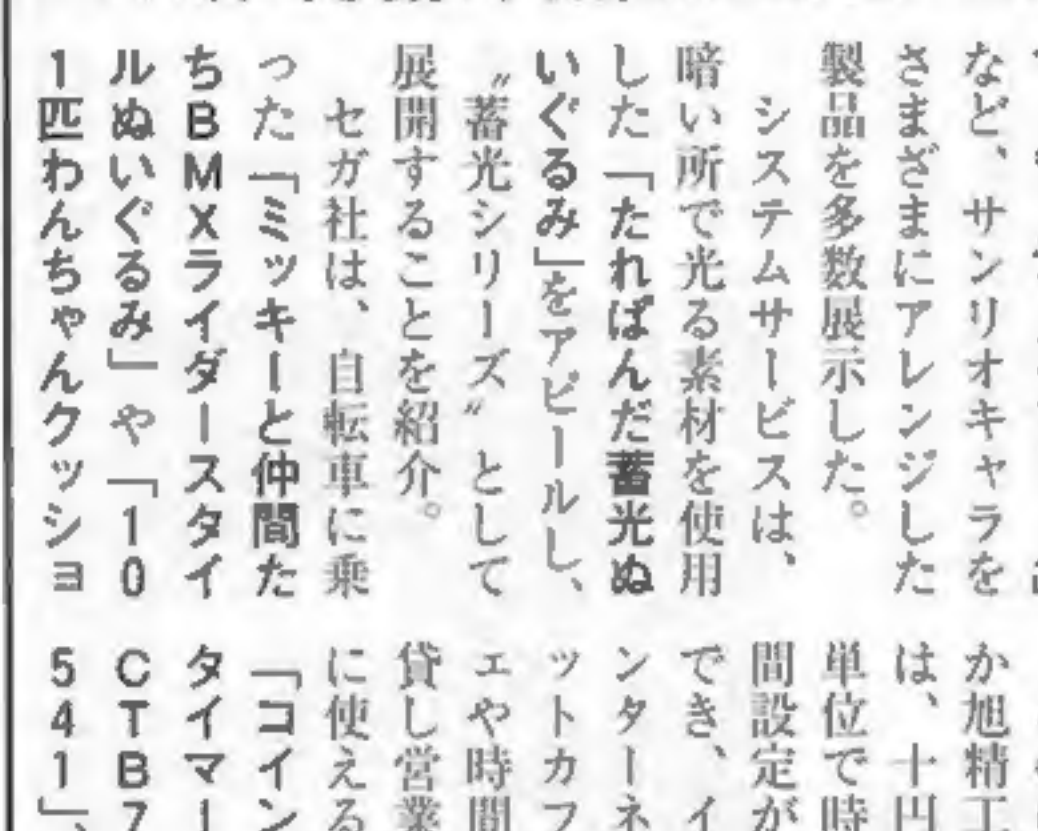 など、サンリオキャラを
さまざまにアレンジした
製品を多数展示した。
システムサービスは、
暗い所で光る素材を使用
した「たればんだ蓄光ぬ
いぐるみ」をアピールし、
〝蓄光シリーズ〟として
展開することを紹介。
セガ社は、自転車に乗
った「ミッキーと仲間た
ちBMXライダースタイ
ルぬいぐるみ」や「10
1匹わんちゃんクッショ
か旭精工
は、十円
単位で時
間設定が
でき、イ
ンターネ
ットカフ
ェや時間
貸し営業
に使える
「コイン
タイマー
CTB7
541」、